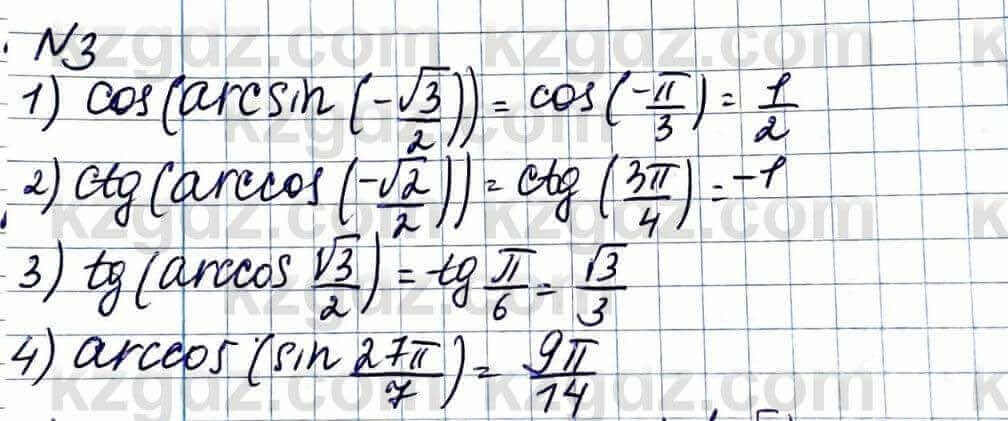 N3
1) cos(arcsin(-√3/2)) = cos(-π/3) = 1/2
2) ctg(arccos(-√2/2)) = ctg(3π/4) = -1
3) tg(arccos √3/2) = tg π/6 = √3/3
4) arccos(sin 27π/7) = 9π/14